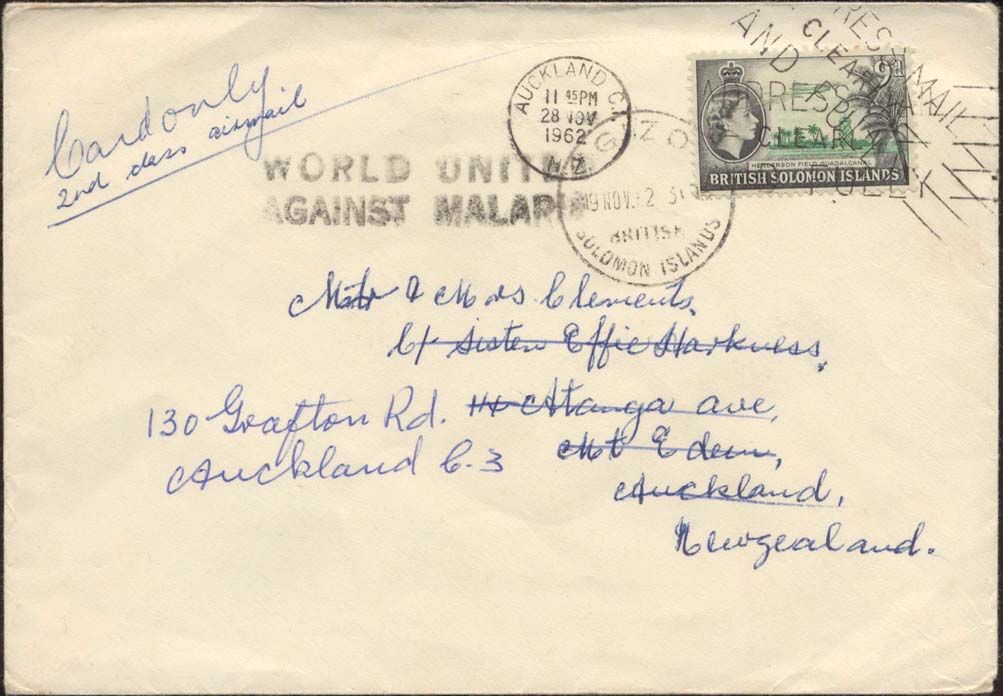 Card only
2nd class airmail
WORLD UNITE
AGAINST MALARI
AUCKLAND C.1.
11 45PM
28 NOV
1962
N.Z.
GIZO
19 NOV 62
BRITISH
SOLOMON ISLANDS
9d
HENDERSON FIELD GUADALCANAL
BRITISH SOLOMON ISLANDS
AND
CLEAR
MAIL
CLEAR
FULLY
Mr & Mrs Clements,
C/- Sister Effie Harkness,
130 Grafton Rd. 14 Atanga ave,
Auckland C.3 Mt Eden,
Auckland,
Newzealand.